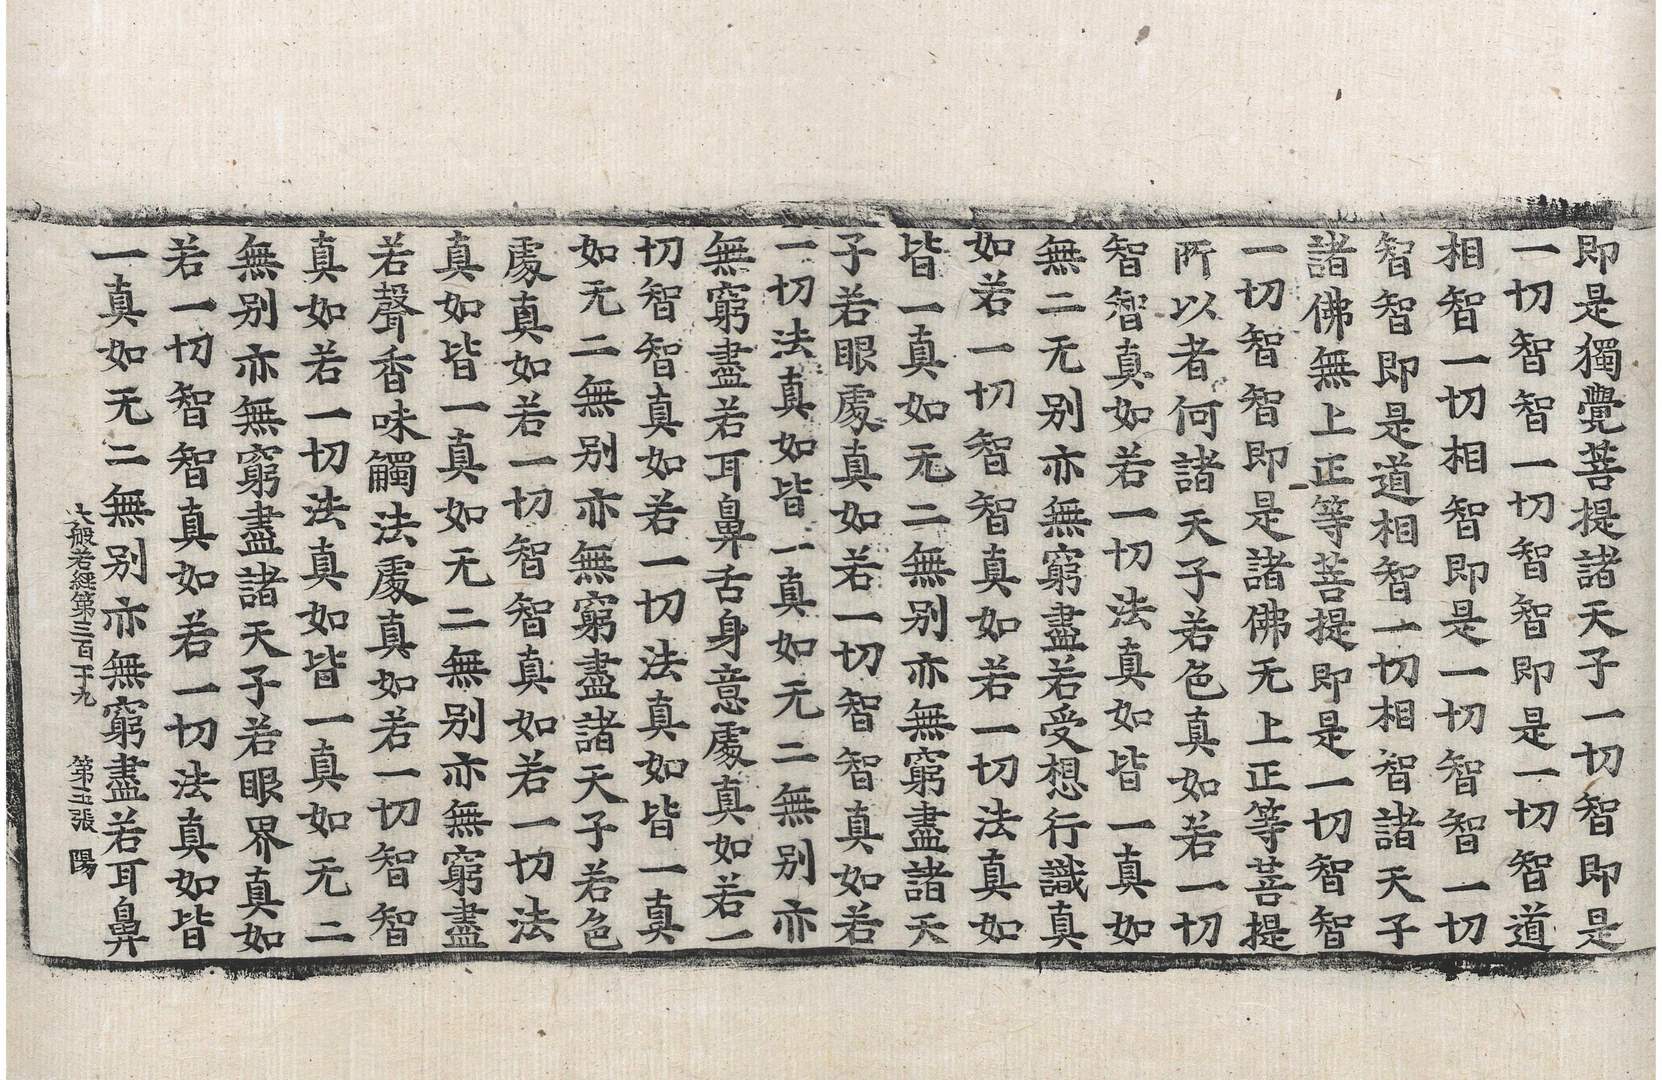 即是獨覺菩提諸天子一切智即是
一切智智一切智智即是一切智道
相智一切相智即是一切智智一切
智智即是道相智一切相智諸天子
諸佛無上正等菩提即是一切智智
一切智智即是諸佛无上正等菩提
所以者何諸天子若色真如若一切
智智真如若一切法真如皆一真如
無二无别亦無窮盡若受想行識真
如若一切智智真如若一切法真如
皆一真如无二無别亦無窮盡諸天
子若眼處真如若一切智智真如若
一切法真如皆一真如无二無别亦
無窮盡若耳鼻舌身意處真如若一
切智智真如若一切法真如皆一真
如无二無别亦無窮盡諸天子若色
處真如若一切智智真如若一切法
真如皆一真如无二無别亦無窮盡
若聲香味觸法處真如若一切智智
真如若一切法真如皆一真如无二
無别亦無窮盡諸天子若眼界真如
若一切智智真如若一切法真如皆
一真如无二無别亦無窮盡若耳鼻
大般若經第三百十九 第五張 陽